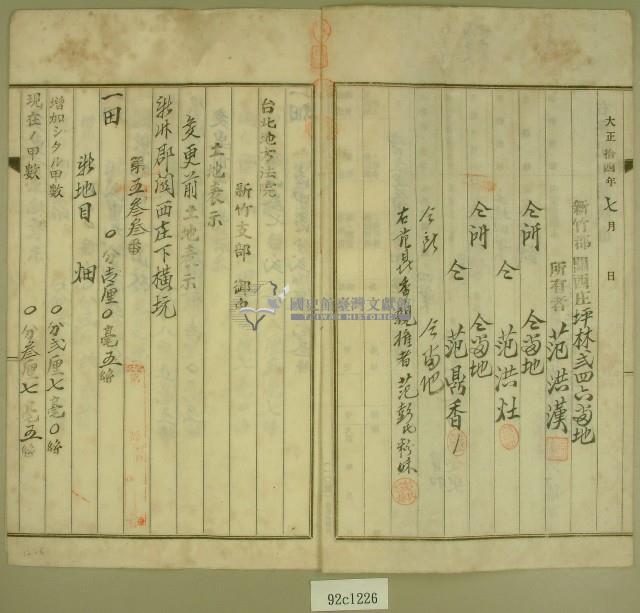 大正拾四年七月 日
新竹郡關西庄坪林弍四六番地
所有者 范洪漢
仝所 仝番地
仝 范洪灶
仝所 仝番地
仝 范鼎香
仝所 仝番地
右范鼎香親權者 范彭氏粉妹
台北地方法院
新竹支部 御中
土地表示
変更前土地表示
新竹郡關西庄下橫坑
第五叁叁番
一田 0分壱厘0毫五絲
新地目 畑
增加シタル甲數 0分弍厘七毫0絲
現在ノ甲數 0分叁厘七毫五絲
國史館臺灣文獻館
TAIWAN HISTORICA
92c1226